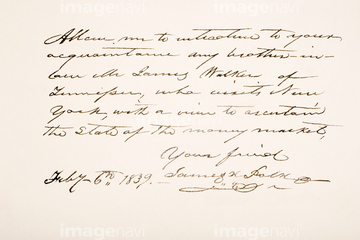 Allow me to introduce to your
acquaintance my brother-in-
law Mr James Walker of
Tennessee, who visits New
York, with a view to ascertain
the State of the money market,
Your friend
Feby 6th 1839. — James K Polk